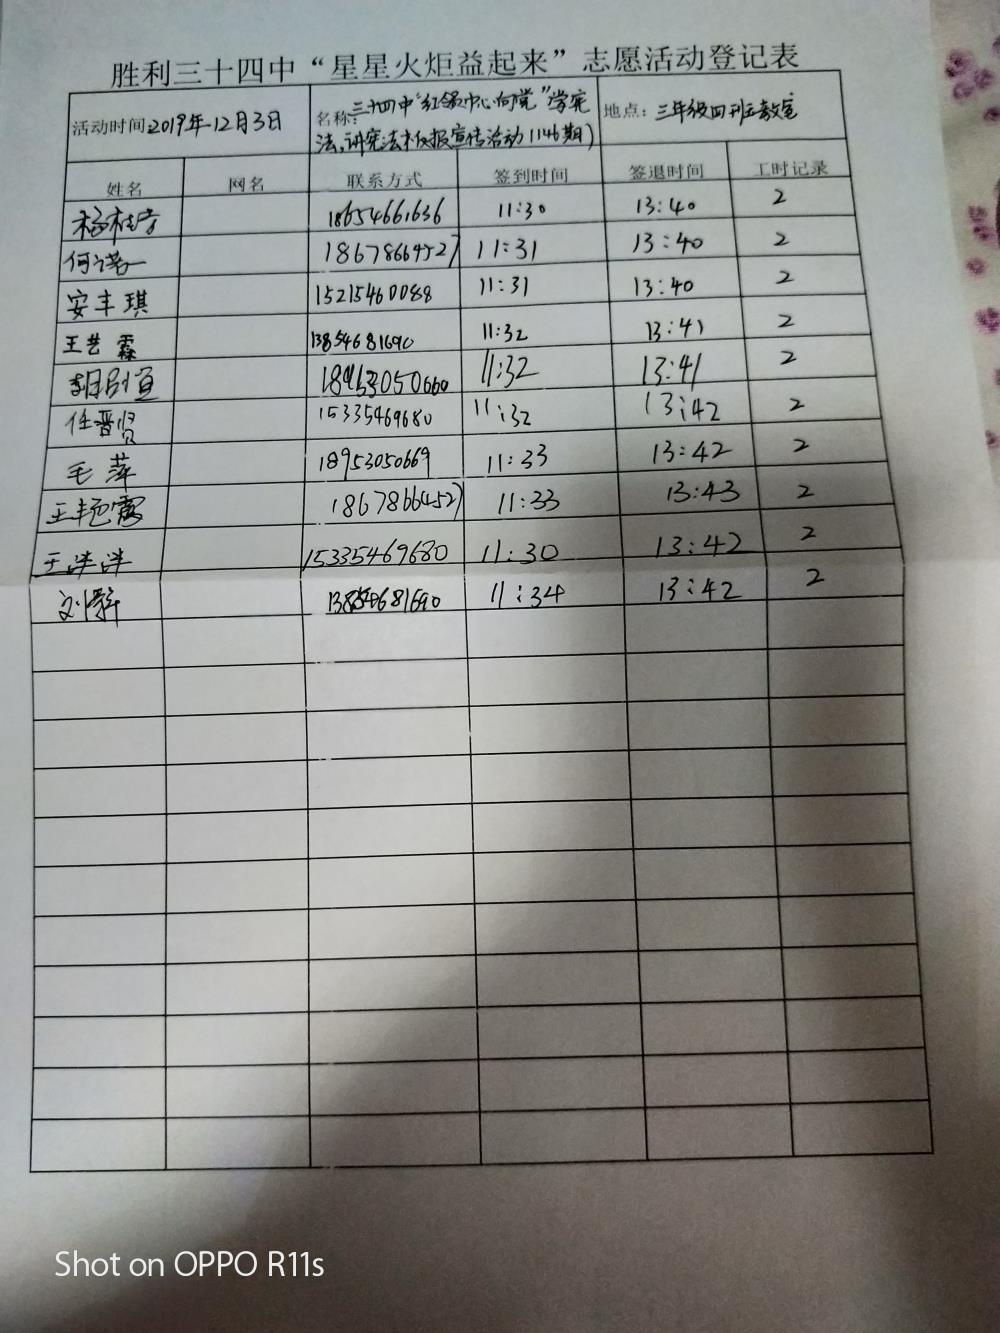 胜利三十四中“星星火炬益起来”志愿活动登记表
活动时间:2019年12月3日 名称:三十四中“红领巾心向党”学宪 地点:三年级四班教室
法,讲宪法手抄报宣传活动(146期)
姓名 网名 联系方式 签到时间 签退时间 工时记录
18654661636 11:30 13:40 2
何诺一 18678664527 11:31 13:40 2
安丰琪 15215460088 11:31 13:40 2
王艺霖 13854681690 11:32 13:41 2
11:32 13:41 2
任晋贤 15335469680 11:32 13:42 2
毛萍 18953050669 11:33 13:42 2
王艳霞 18678664527 11:33 13:43 2
王洋洋 15335469680 11:30 13:42 2
刘 13854681690 11:34 13:42 2
Shot on OPPO R11s